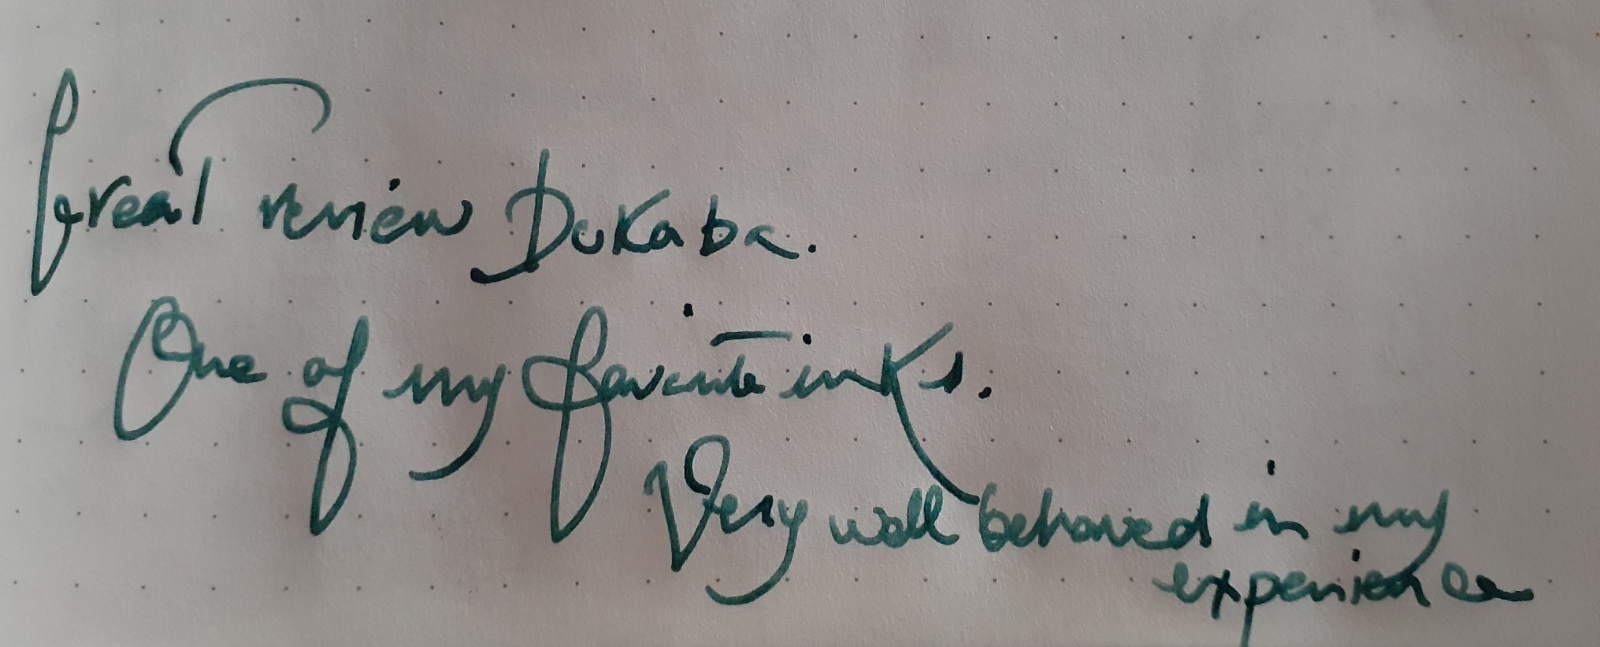 Great review Dukaba.
One of my favorite inks.
Very well behaved in my
experience